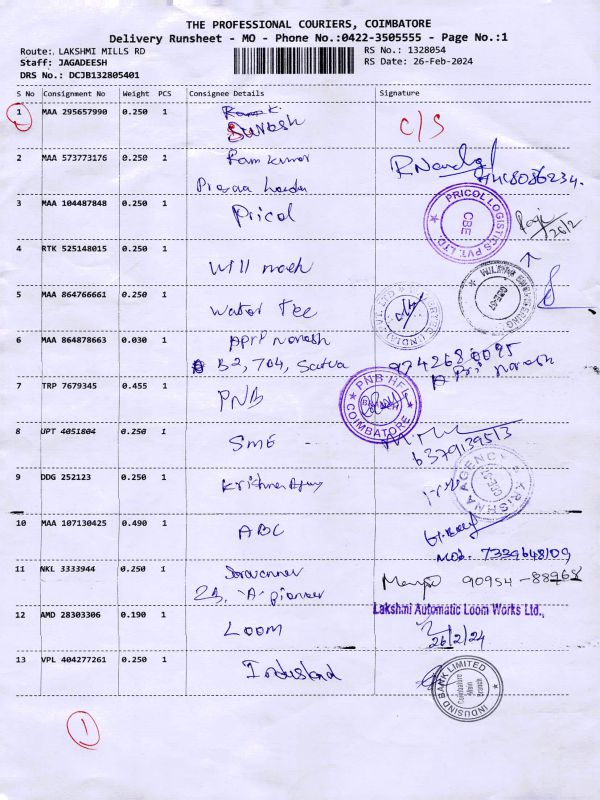 THE PROFESSIONAL COURIERS, COIMBATORE
Delivery Runsheet - MO - Phone No.:0422-3505555 - Page No.:1
Route: LAKSHMI MILLS RD
RS No.: 1328054
Staff: JAGADEESH
RS Date: 26-Feb-2024
DRS No.: DCJB132805401
S No Consignment No Weight PCS Consignee Details Signature
1 MAA 295657990 0.250 1 Suresh C/S
2 MAA 573773176 0.250 1 Ram kumar
3 MAA 104487848 0.250 1 Pricol PRICOL LOGISTICS PVT. LTD. CBE 26/2
4 RTK 525148015 0.250 1
5 MAA 864766661 0.250 1 Water Tee
6 MAA 864878663 0.030 1
B2, 704, Satva
7 TRP 7679345 0.455 1 PNB PNB HFL COIMBATORE
8 UPT 4051804 0.250 1 SME 6379139513
9 DDG 252123 0.250 1 Krishna Agency KRISHNA AGENCY
10 MAA 107130425 0.490 1 ABC
Mob. 7339648109
11 NKL 3333944 0.250 1 90954-88968
"A" pioneer
Lakshmi Automatic Loom Works Ltd.,
12 AMD 28303306 0.190 1 Loom 26/2/24
13 VPL 404277261 0.250 1 Indusind INDUSIND BANK LIMITED Coimbatore Main Branch
1